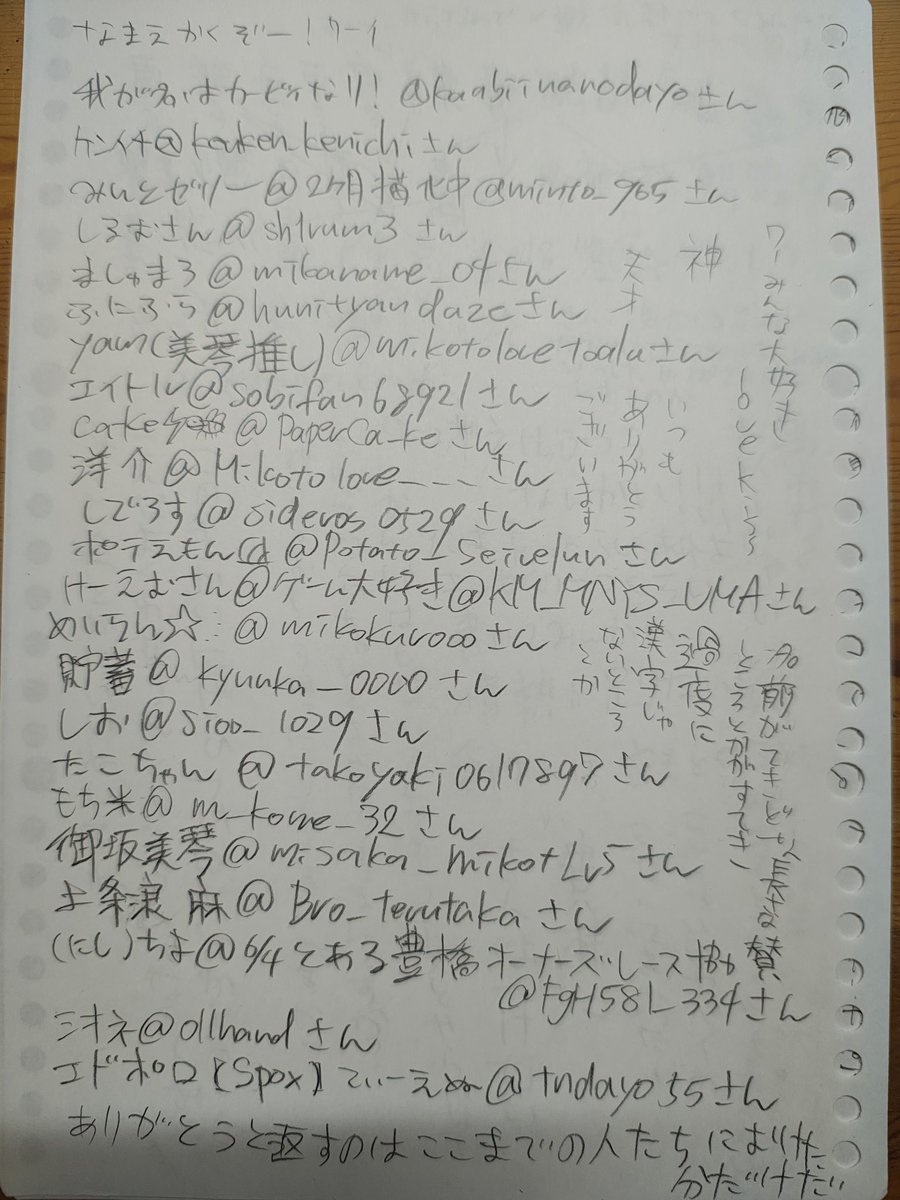 なまえかくぞー!ワーイ
我が名はカービィなり! @kaabiinanodayoさん
ケンイチ@kenkenkenichiさん
みんとゼリー@2ケ月 中@minto_965さん
しるむさん@sh1rum3さん
ましゅまろ@mikaname_04さん
ふにふら@hunityandazeさん
yawn(美琴推し)@mikotolovetoaluさん
エイトル@sobifan68921さん
cake @PaperCa_keさん
洋介@Mikotolove___さん
しでろす@sideros0529さん
ポテえもん @Potato_さん
けーえむさん@ゲーム大好き@KM_MNTS_UMAさん
めいちん☆ @mikokuroooさん
貯蓄@kyuuka_0000さん
しお@sioo_1029さん
たこちゃん@takoyaki0617897さん
もち米@m_kome_32さん
御坂美琴@misaka_mikotLv5さん
上条 麻@Bro_terutakaさん
(にし)ちよ@6/4とある豊橋オーナーズレース協賛
@FgH58L334さん
シオネ@ollhandさん
エドポロ【Spox】てぃーえぬ@tndayo55さん
ありがとうと返すのはここまでの人たちに
分だけだい
ワーみんな大好き
love
神
天才
いつも
ありがとう
ございます
名前がてきどな長さな
ところとかがすてき
過度に
漢字じゃ
ないところ
とか